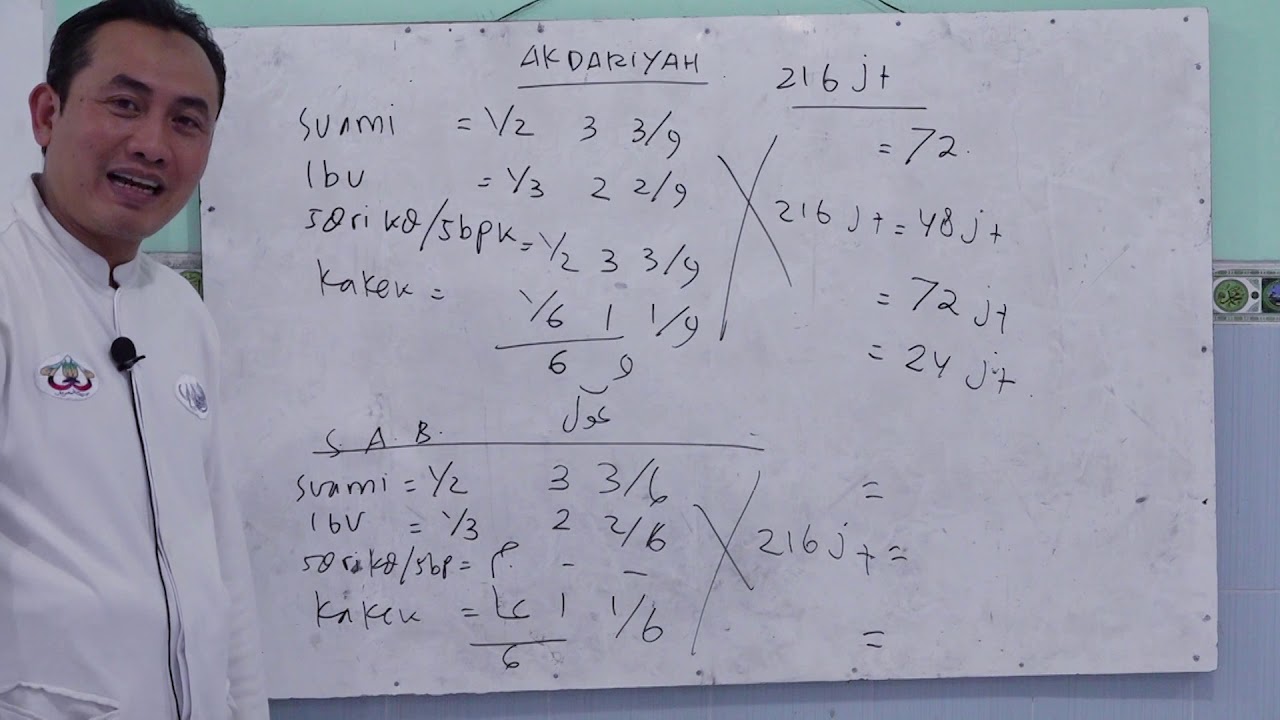 AKDARIYAH
216 jt
Suami = 1/2 3 3/9 = 72.
Ibu = 1/3 2 2/9 X 216 jt = 48 jt
Sdrikd/Sbpk = 1/2 3 3/9 = 72 jt
Kakek = 1/6 1 1/9 = 24 jt
6 9
عول
S. A. B.
Suami = 1/2 3 3/6 =
Ibu = 1/3 2 2/6 X 216 jt =
Sdrikd/Sbp = م - -
Kakek = 1 1/6 =
6